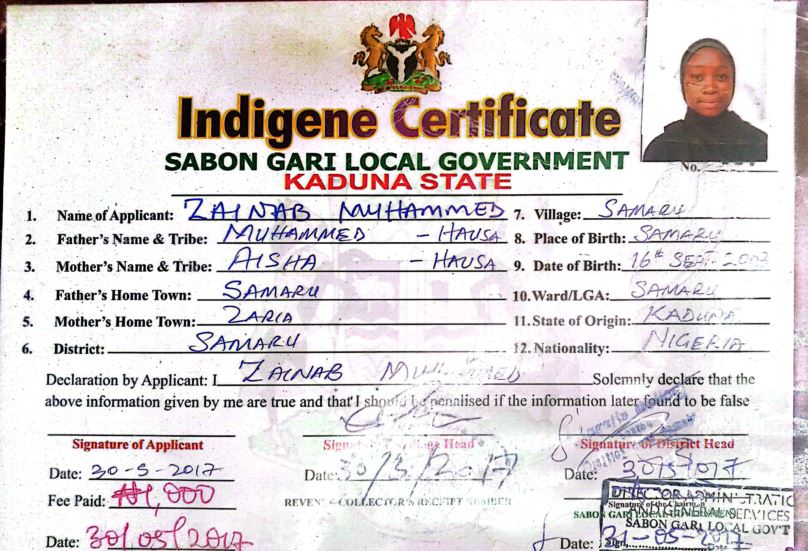 Indigene Certificate
SABON GARI LOCAL GOVERNMENT
KADUNA STATE
No.
1. Name of Applicant: ZAINAB MUHAMMED 7. Village: SAMARU
2. Father's Name & Tribe: MUHAMMED - HAUSA 8. Place of Birth: SAMARU
3. Mother's Name & Tribe: AISHA - HAUSA 9. Date of Birth: 16th SEPT.
4. Father's Home Town: SAMARU 10. Ward/LGA: SAMARU
5. Mother's Home Town: ZARIA 11. State of Origin: KADUNA
6. District: SAMARU 12. Nationality: NIGERIA
Declaration by Applicant: I ZAINAB MUHAMMED Solemnly declare that the
above information given by me are true and that I should be penalised if the information later found to be false
Signature of Applicant Signature Village Head Signature of District Head
Date: 30-5-2017 Date: 30/5/2017 Date: 30/5/2017
Fee Paid: ₦1,000 REVENUE COLLECTOR'S RECEIPT NUMBER
DIRECTOR ADMINISTRATION
Signature of the Chairman
AND GENERAL SERVICES
SABON GARI LOCAL GOVERNMENT
SABON GARI LOCAL GOV'T
Date: 30/05/2017 Date: 31-05-2017
Sign